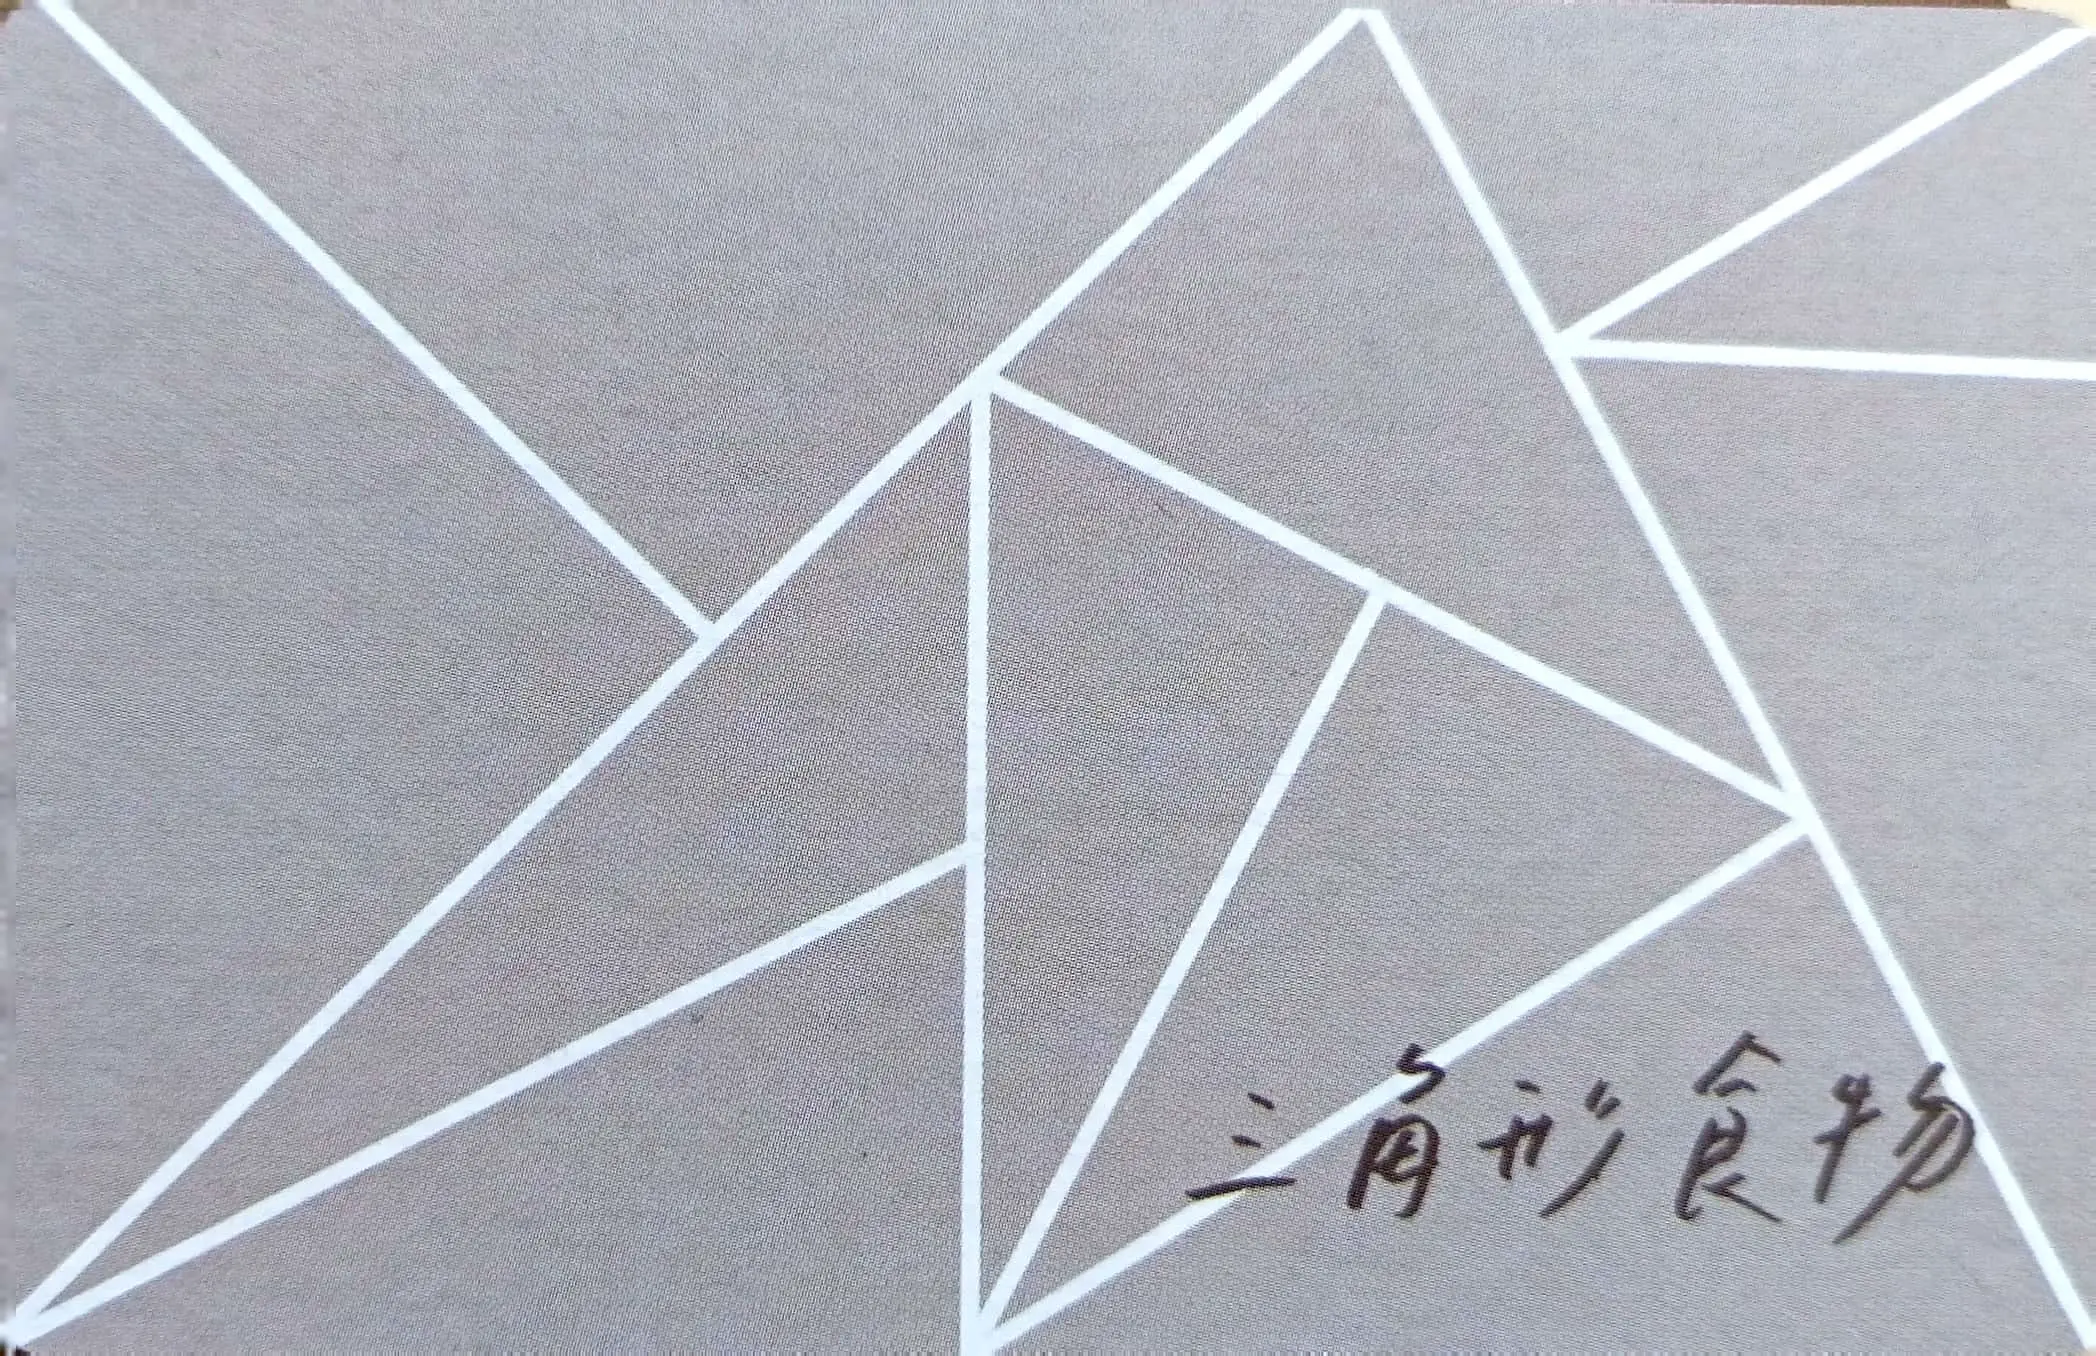 三角形食物